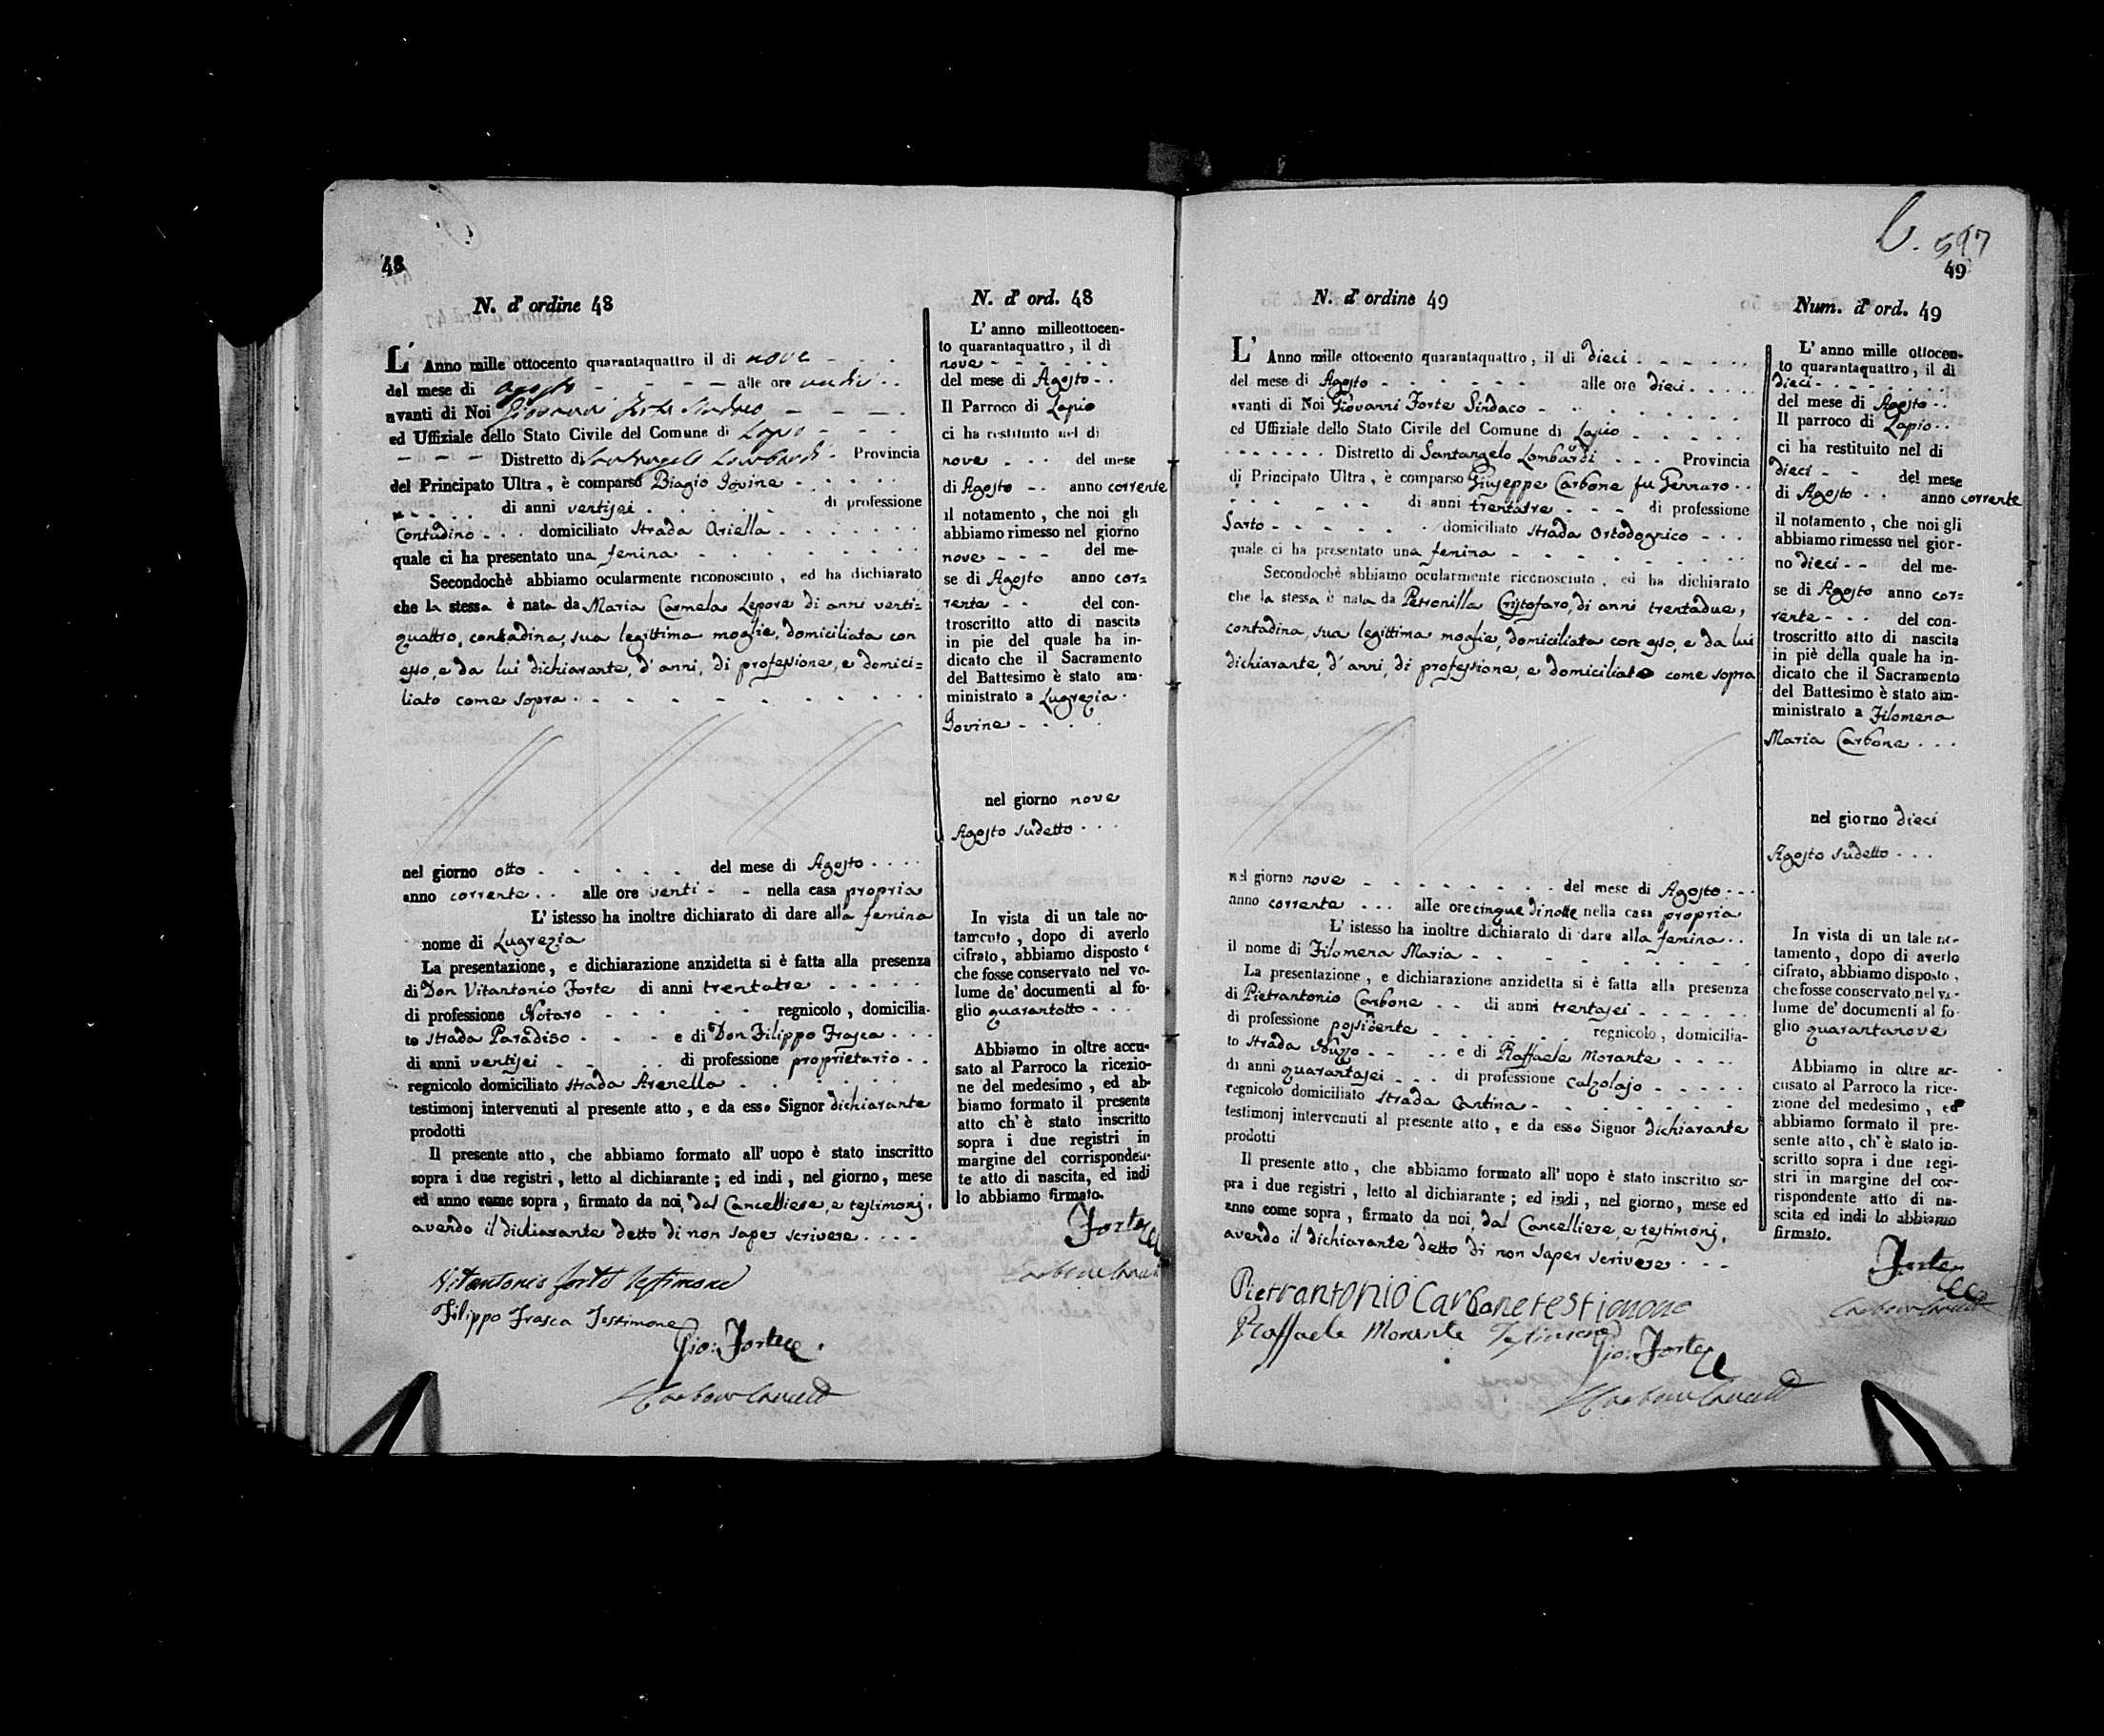 48
N. d' ordine 48
L' Anno mille ottocento quarantaquattro il di nove
del mese di agosto alle ore undici
avanti di Noi Giovanni Forte Sindaco
ed Uffiziale dello Stato Civile del Comune di Lapio
Distretto di Santangelo Lombardi Provincia
del Principato Ultra, è comparso Biagio Iovine
di anni ventisei di professione
Contadino domiciliato Strada Ariella
quale ci ha presentato una femina
Secondochè abbiamo ocularmente riconosciuto, ed ha dichiarato
che la stessa è nata da Maria Carmela Lepore di anni venti=
quattro, contadina, sua legittima moglie, domiciliata con
esso, e da lui dichiarante, d' anni, di professione, e domici=
liato come sopra
nel giorno otto del mese di Agosto
anno corrente alle ore venti nella casa propria
L' istesso ha inoltre dichiarato di dare alla femina
nome di Lugrezia
La presentazione, e dichiarazione anzidetta si è fatta alla presenza
di Don Vitantonio Forte di anni trentatre
di professione Notaro regnicolo, domicilia-
to Strada Paradiso e di Don Filippo Frasca
di anni ventisei di professione proprietario
regnicolo domiciliato Strada Arenella
testimonj intervenuti al presente atto, e da esso Signor dichiarante
prodotti
Il presente atto, che abbiamo formato all' uopo è stato inscritto
sopra i due registri, letto al dichiarante; ed indi, nel giorno, mese
ed anno come sopra, firmato da noi, dal Cancelliere, e testimonj,
avendo il dichiarante detto di non saper scrivere
Vitantonio Forte testimone
Filippo Frasca Testimone
Gio: Forte
N. d' ord. 48
L' anno milleottocen-
to quarantaquattro, il dì
nove
del mese di Agosto
Il Parroco di Lapio
ci ha restituito nel di
nove del mese
di Agosto anno corrente
il notamento, che noi gli
abbiamo rimesso nel giorno
nove del me-
se di Agosto anno cor=
rente del con-
troscritto atto di nascita
in pie del quale ha in-
dicato che il Sacramento
del Battesimo è stato am-
ministrato a Lugrezia
Iovine
nel giorno nove
Agosto sudetto
In vista di un tale no-
tamento, dopo di averlo
cifrato, abbiamo disposto
che fosse conservato nel vo-
lume de' documenti al fo-
glio quarantotto
Abbiamo in oltre accu-
sato al Parroco la ricezio-
ne del medesimo, ed ab-
biamo formato il presente
atto ch' è stato inscritto
sopra i due registri in
margine del corrisponden-
te atto di nascita, ed indi
lo abbiamo firmato.
Forte
597
49
N. d' ordine 49
L' Anno mille ottocento quarantaquattro, il di dieci
del mese di Agosto alle ore dieci
avanti di Noi Giovanni Forte Sindaco
ed Uffiziale dello Stato Civile del Comune di Lapio
Distretto di Santangelo Lombardi Provincia
di Principato Ultra, è comparso Giuseppe Carbone fu Gennaro
di anni trentatre di professione
Sarto domiciliato Strada Ortodognico
quale ci ha presentato una femina
Secondochè abbiamo ocularmente riconosciuto, ed ha dichiarato
che la stessa è nata da Petronilla Cristofaro, di anni trentadue,
contadina, sua legittima moglie, domiciliata con esso, e da lui
dichiarante, d' anni, di professione, e domiciliato come sopra
nel giorno nove del mese di Agosto
anno corrente alle ore cinque di notte nella casa propria
L' istesso ha inoltre dichiarato di dare alla femina
il nome di Filomena Maria
La presentazione, e dichiarazione anzidetta si è fatta alla presenza
di Pietrantonio Carbone di anni trentasei
di professione possidente regnicolo, domicilia-
to Strada e di Raffaele Morante
di anni quarantasei di professione calzolajo
regnicolo domiciliato Strada Cantina
testimonj intervenuti al presente atto, e da esso Signor dichiarante
prodotti
Il presente atto, che abbiamo formato all' uopo è stato inscritto so-
pra i due registri, letto al dichiarante; ed indi, nel giorno, mese ed
anno come sopra, firmato da noi, dal Cancelliere, e testimonj,
avendo il dichiarante detto di non saper scrivere
Pietrantonio Carbone testimone
Raffaele Morante Testimone
Gio: Forte
Num. d' ord. 49
L' anno mille ottocen-
to quarantaquattro, il di
dieci
del mese di Agosto
Il parroco di Lapio
ci ha restituito nel di
dieci del mese
di Agosto anno corrente
il notamento, che noi gli
abbiamo rimesso nel gior-
no dieci del me-
se di Agosto anno cor=
rente del con-
troscritto atto di nascita
in piè della quale ha in-
dicato che il Sacramento
del Battesimo è stato am-
ministrato a Filomena
Maria Carbone
nel giorno dieci
Agosto sudetto
In vista di un tale no-
tamento, dopo di averlo
cifrato, abbiamo disposto,
che fosse conservato nel vo-
lume de' documenti al fo-
glio quarantanove
Abbiamo in oltre ac-
cusato al Parroco la rice-
zione del medesimo, ed
abbiamo formato il pre-
sente atto, ch' è stato in-
scritto sopra i due regi-
stri in margine del cor-
rispondente atto di na-
scita ed indi lo abbiamo
firmato.
Forte